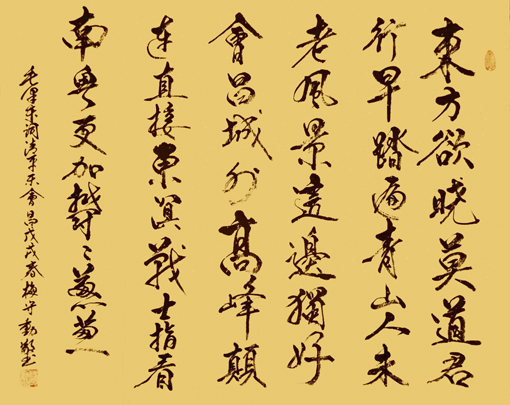 東方欲晓莫道君
行早踏遍青山人未
老風景這邊獨好
會昌城外高峰顛
连直接東溟戰士指看
南粤更加鬱〻葱葱
毛澤东词清平乐會昌戊戌春梅守勤敬书